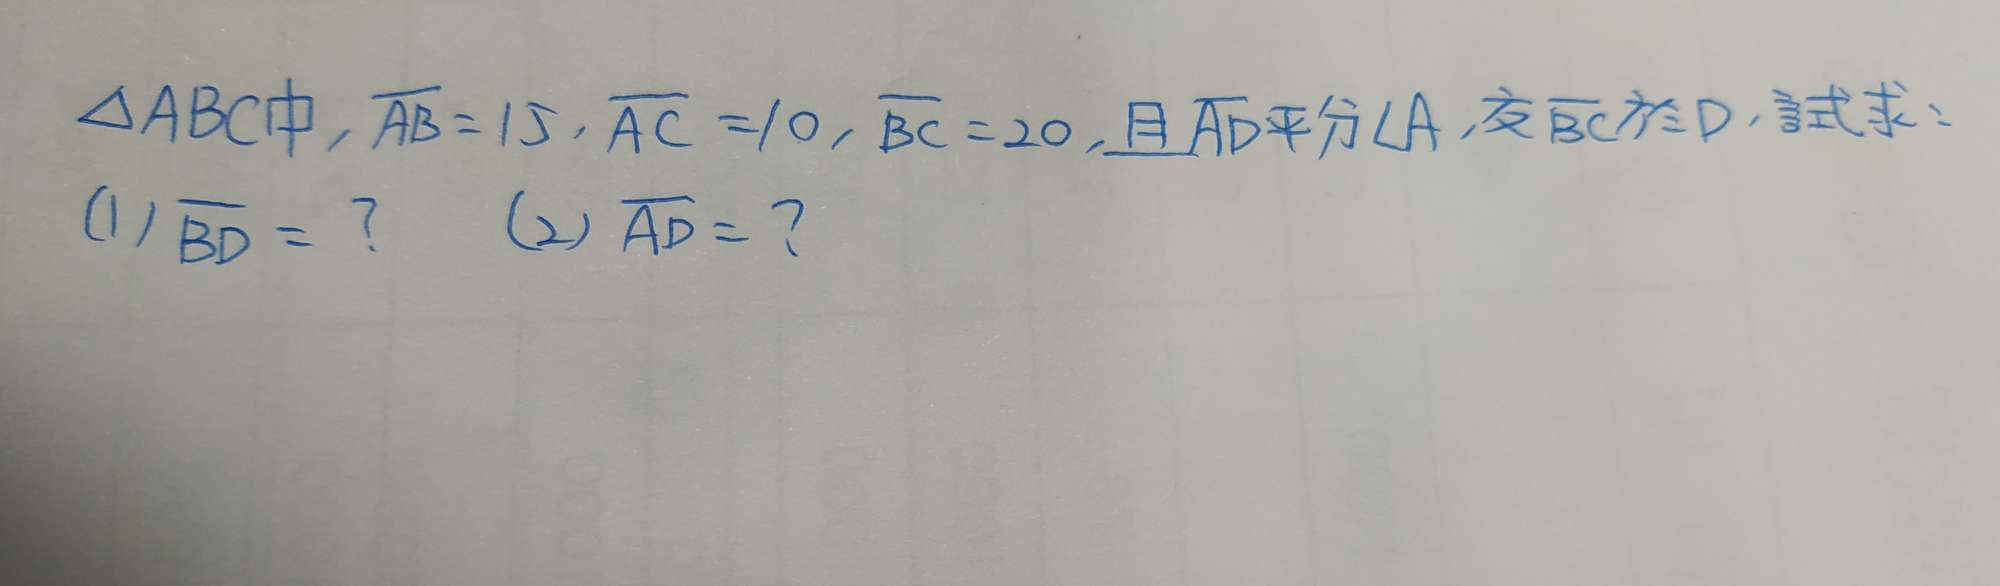 △ABC中, A̅B̅=15, A̅C̅=10, B̅C̅=20, 且A̅D̅平分∠A, 交B̅C̅於D, 試求:
(1) B̅D̅=? (2) A̅D̅=?